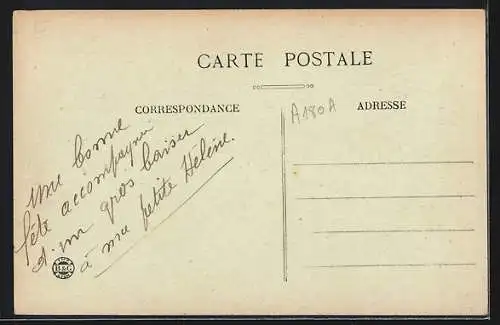 CARTE POSTALE
CORRESPONDANCE
A180A
ADRESSE
une bonne
fête accompagner
d'un gros baiser
à ma petite Hélène.
B&G